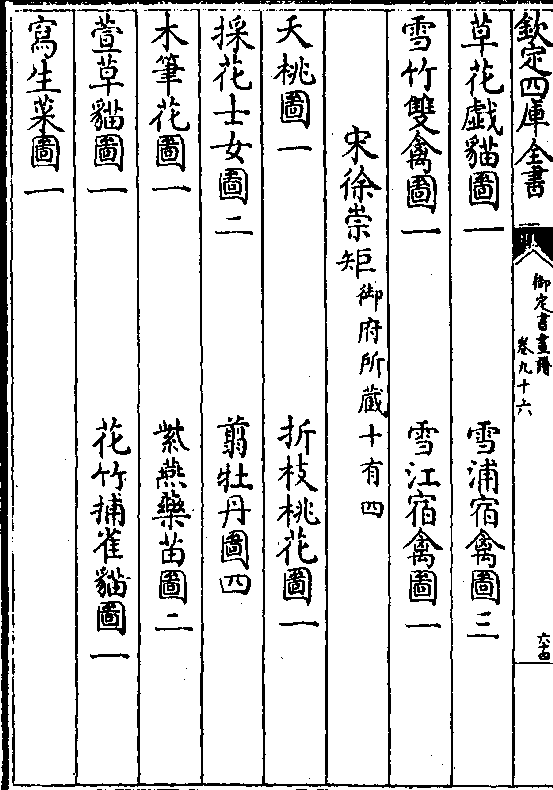 欽定四庫全書
御定書畫譜
卷九十六
六十四
草花戲貓圖一 雪浦宿禽圖三
雪竹雙禽圖一 雪江宿禽圖一
宋徐崇矩御府所藏十有四
夭桃圖一 折枝桃花圖一
採花士女圖二 翦牡丹圖四
木筆花圖一 紫燕藥苗圖二
萱草貓圖一 花竹捕雀貓圖一
寫生菜圖一